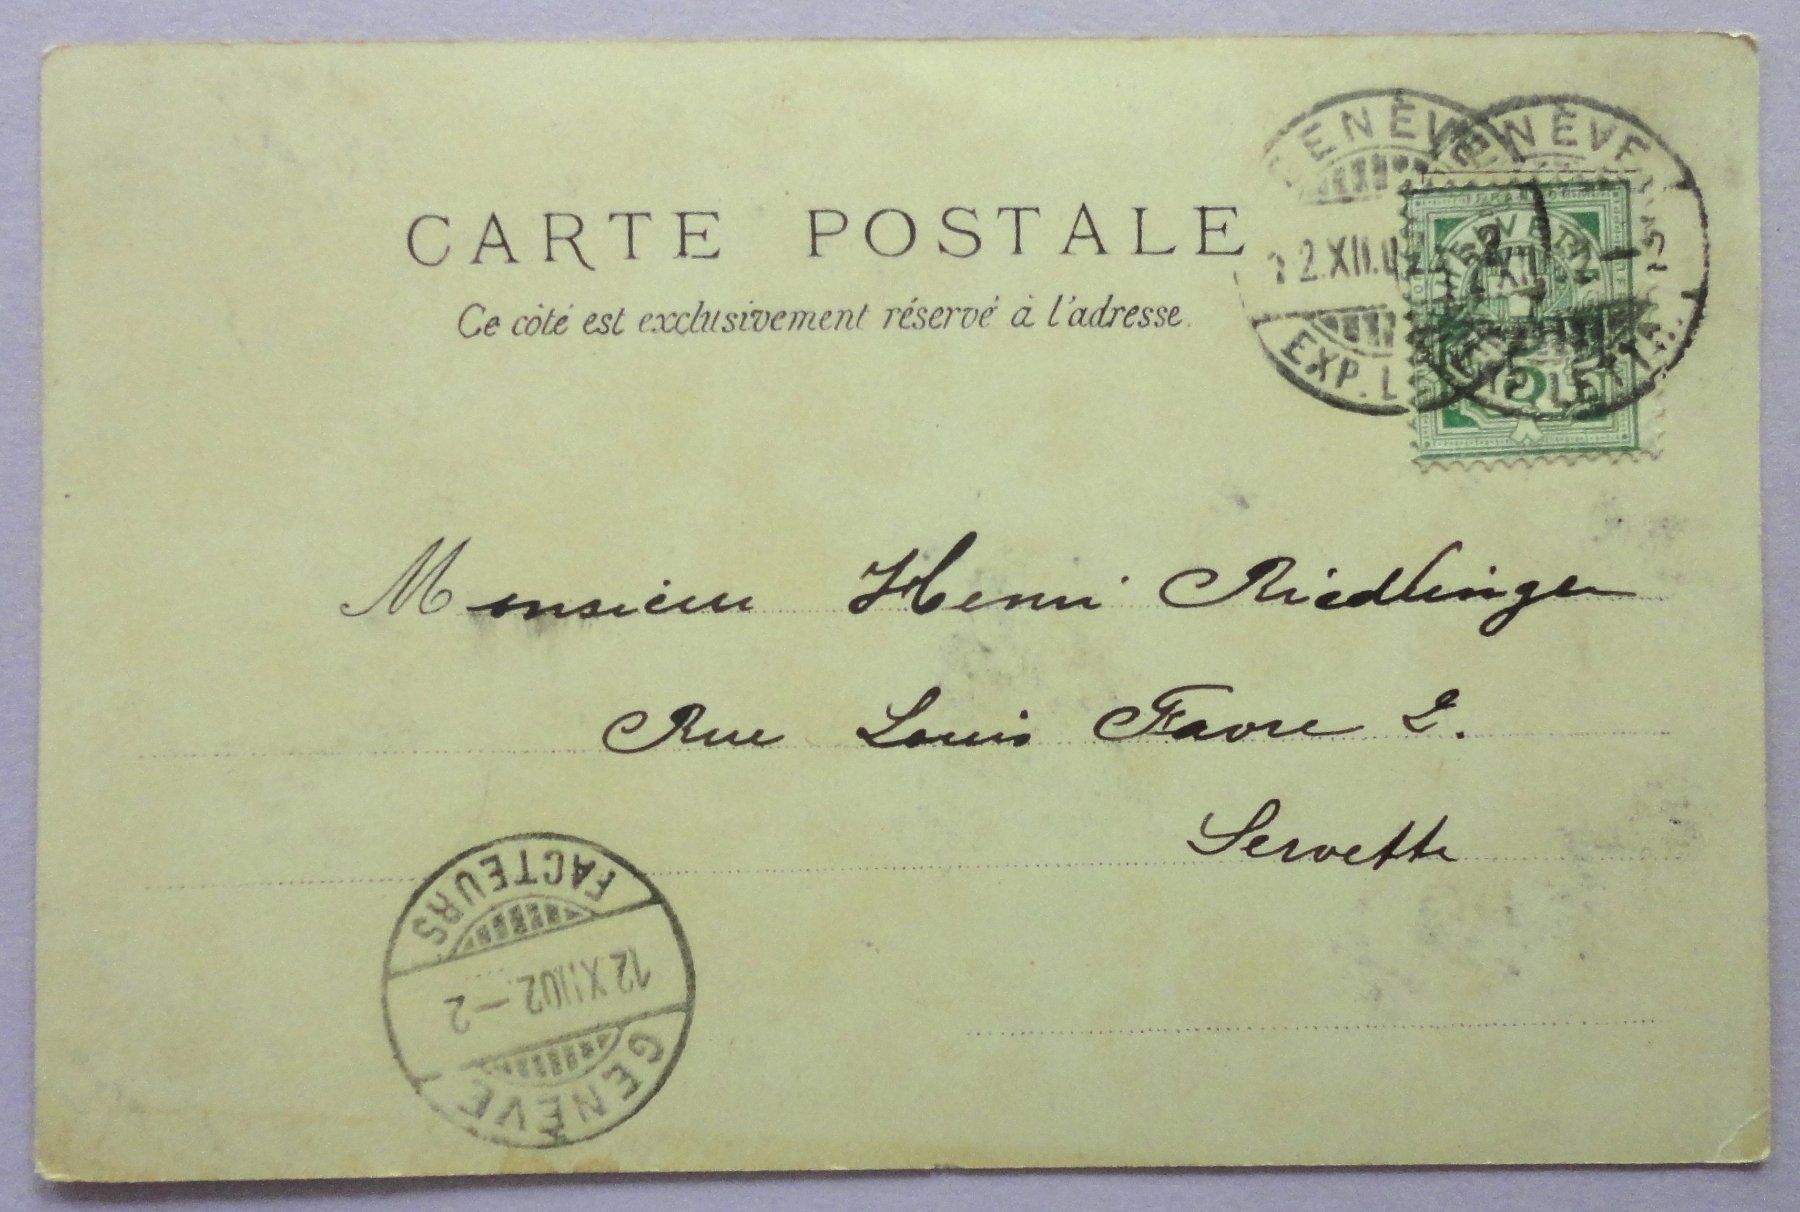 CARTE POSTALE
Ce côté est exclusivement réservé à l'adresse.
GENÈVE
2.XII.02
EXP. L
GENÈVE
XII
EXP. LETTR.
HELVETIA
5
Monsieur Henri Riedlinger
Rue Louis Favre 2.
Servette
GENÈVE
12 XII 02.–2
FACTEURS